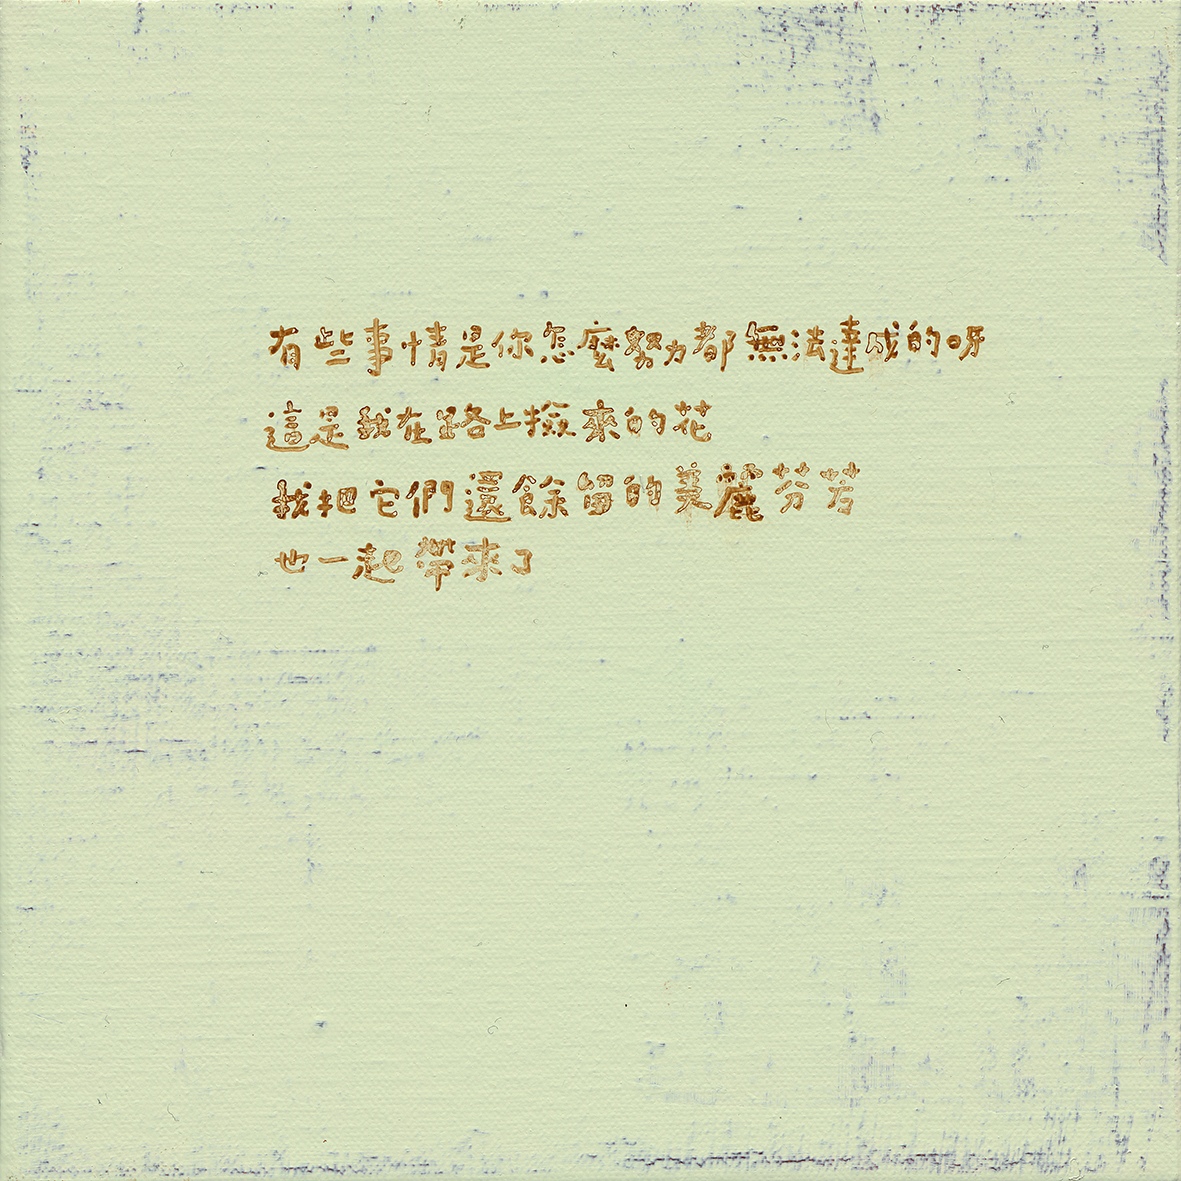 有些事情是你怎麼努力都無法達成的呀
這是我在路上撿來的花
我把它們還餘留的美麗芬芳
也一起帶來了